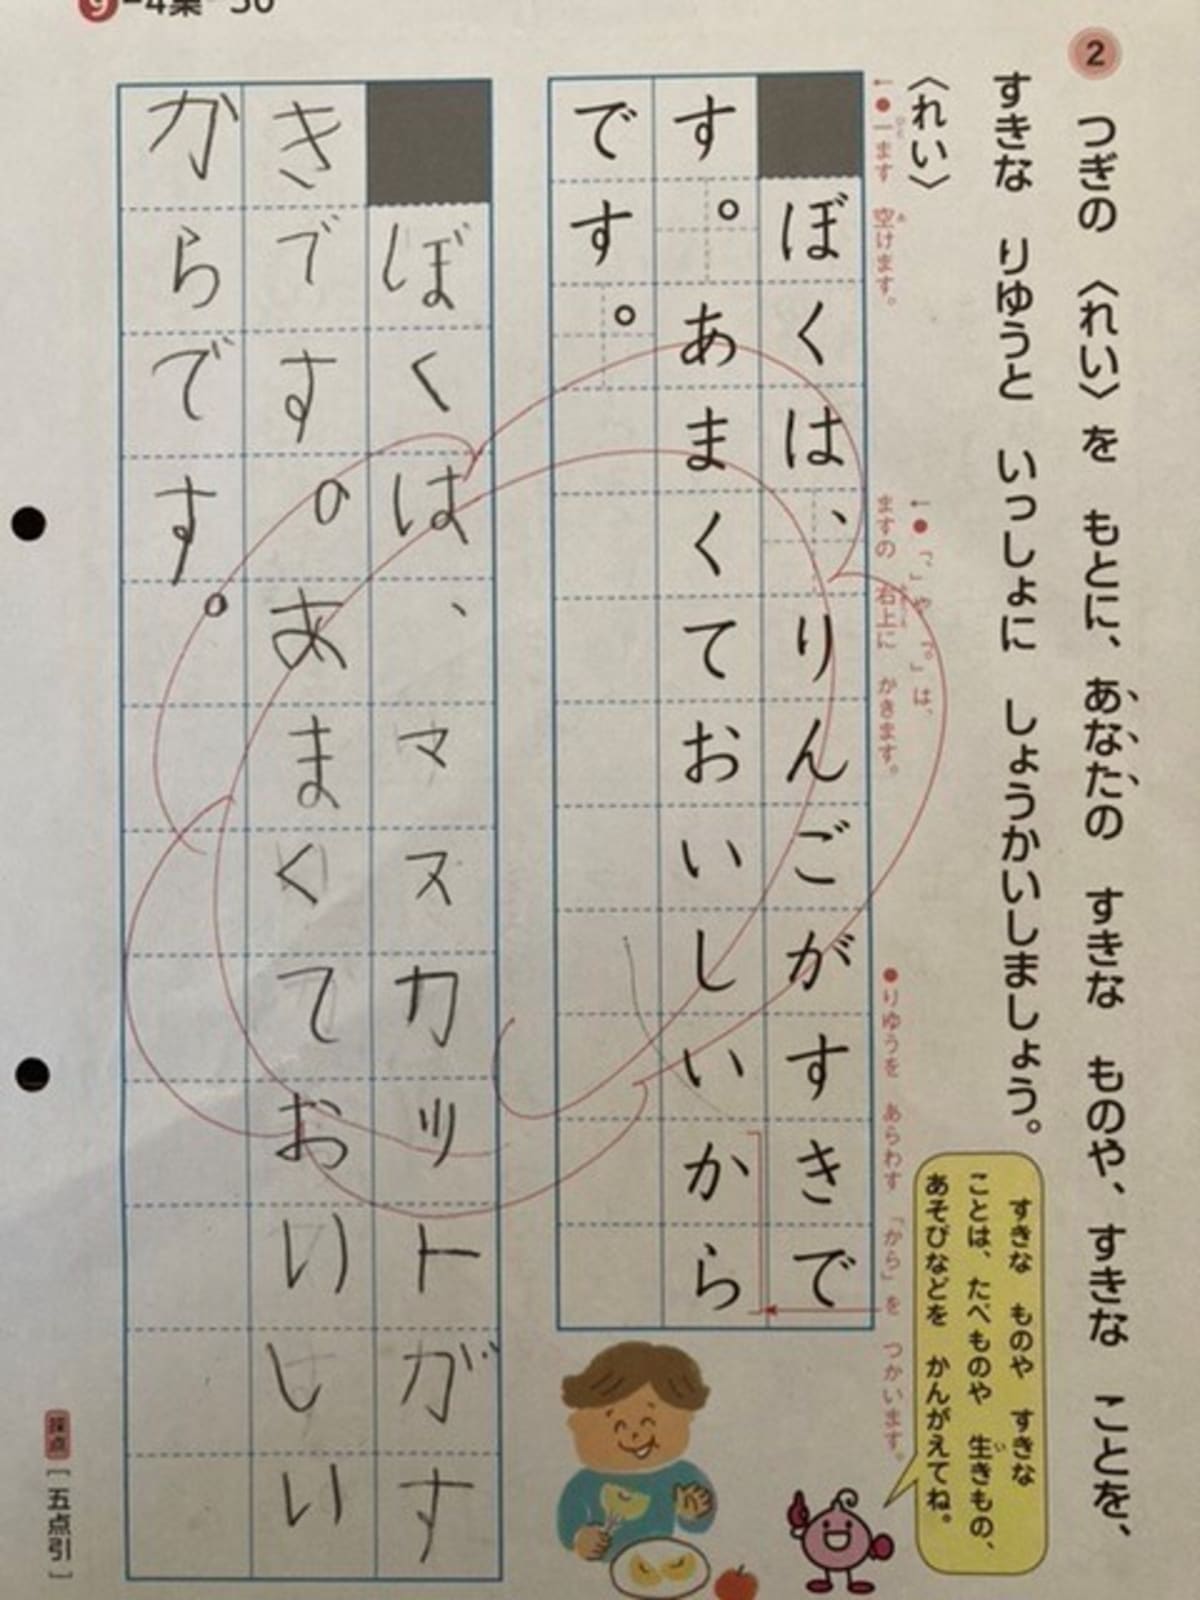 2 つぎの 〈れい〉を もとに、あなたの すきな ものや、すきな ことを、
すきな りゆうと いっしょに しょうかいしましょう。
〈れい〉
←●「、」や「。」は、
ますの 右上に かきます。
←●一ます 空けます。
●りゆうを あらわす 「から」を つかいます。
ぼくは、りんごがすきで
す。あまくておいしいから
です。
すきな ものや すきな
ことは、たべものや 生きもの、
あそびなどを かんがえてね。
ぼくは、マスカットがす
きです。あまくておいしい
からです。
採点 [五点引]